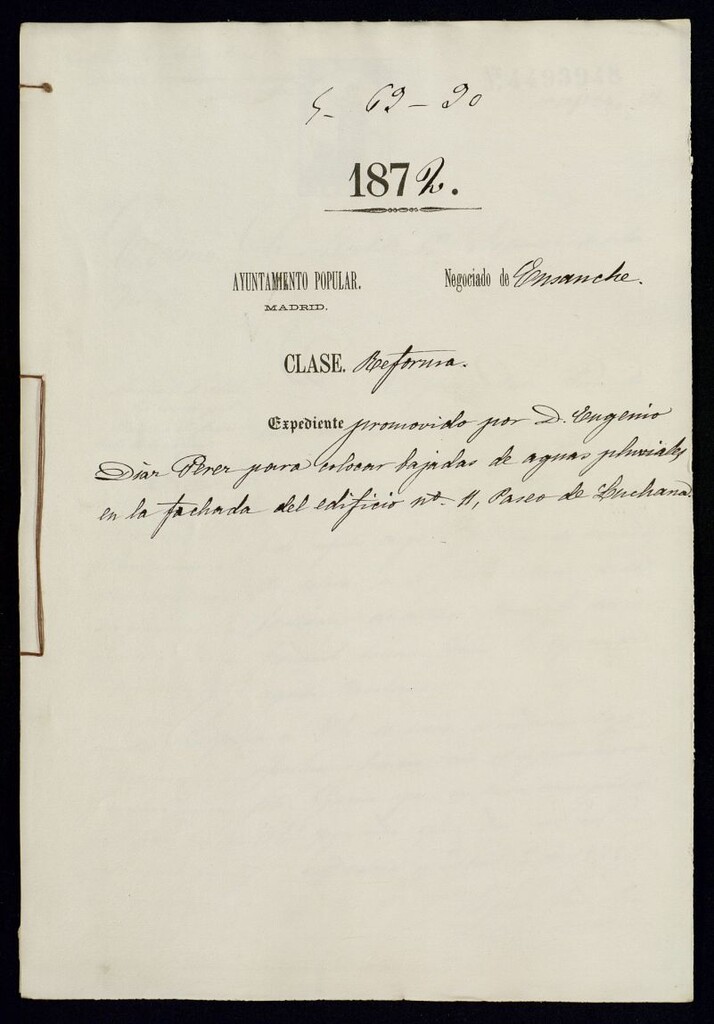 5- 69-20
1872.
AYUNTAMIENTO POPULAR. Negociado de Ensanche.
MADRID.
CLASE. Reforma.
Expediente promovido por D. Eugenio
Diaz Perez para colocar bajadas de aguas pluviales
en la fachada del edificio nº. 11, Paseo de Luchana.